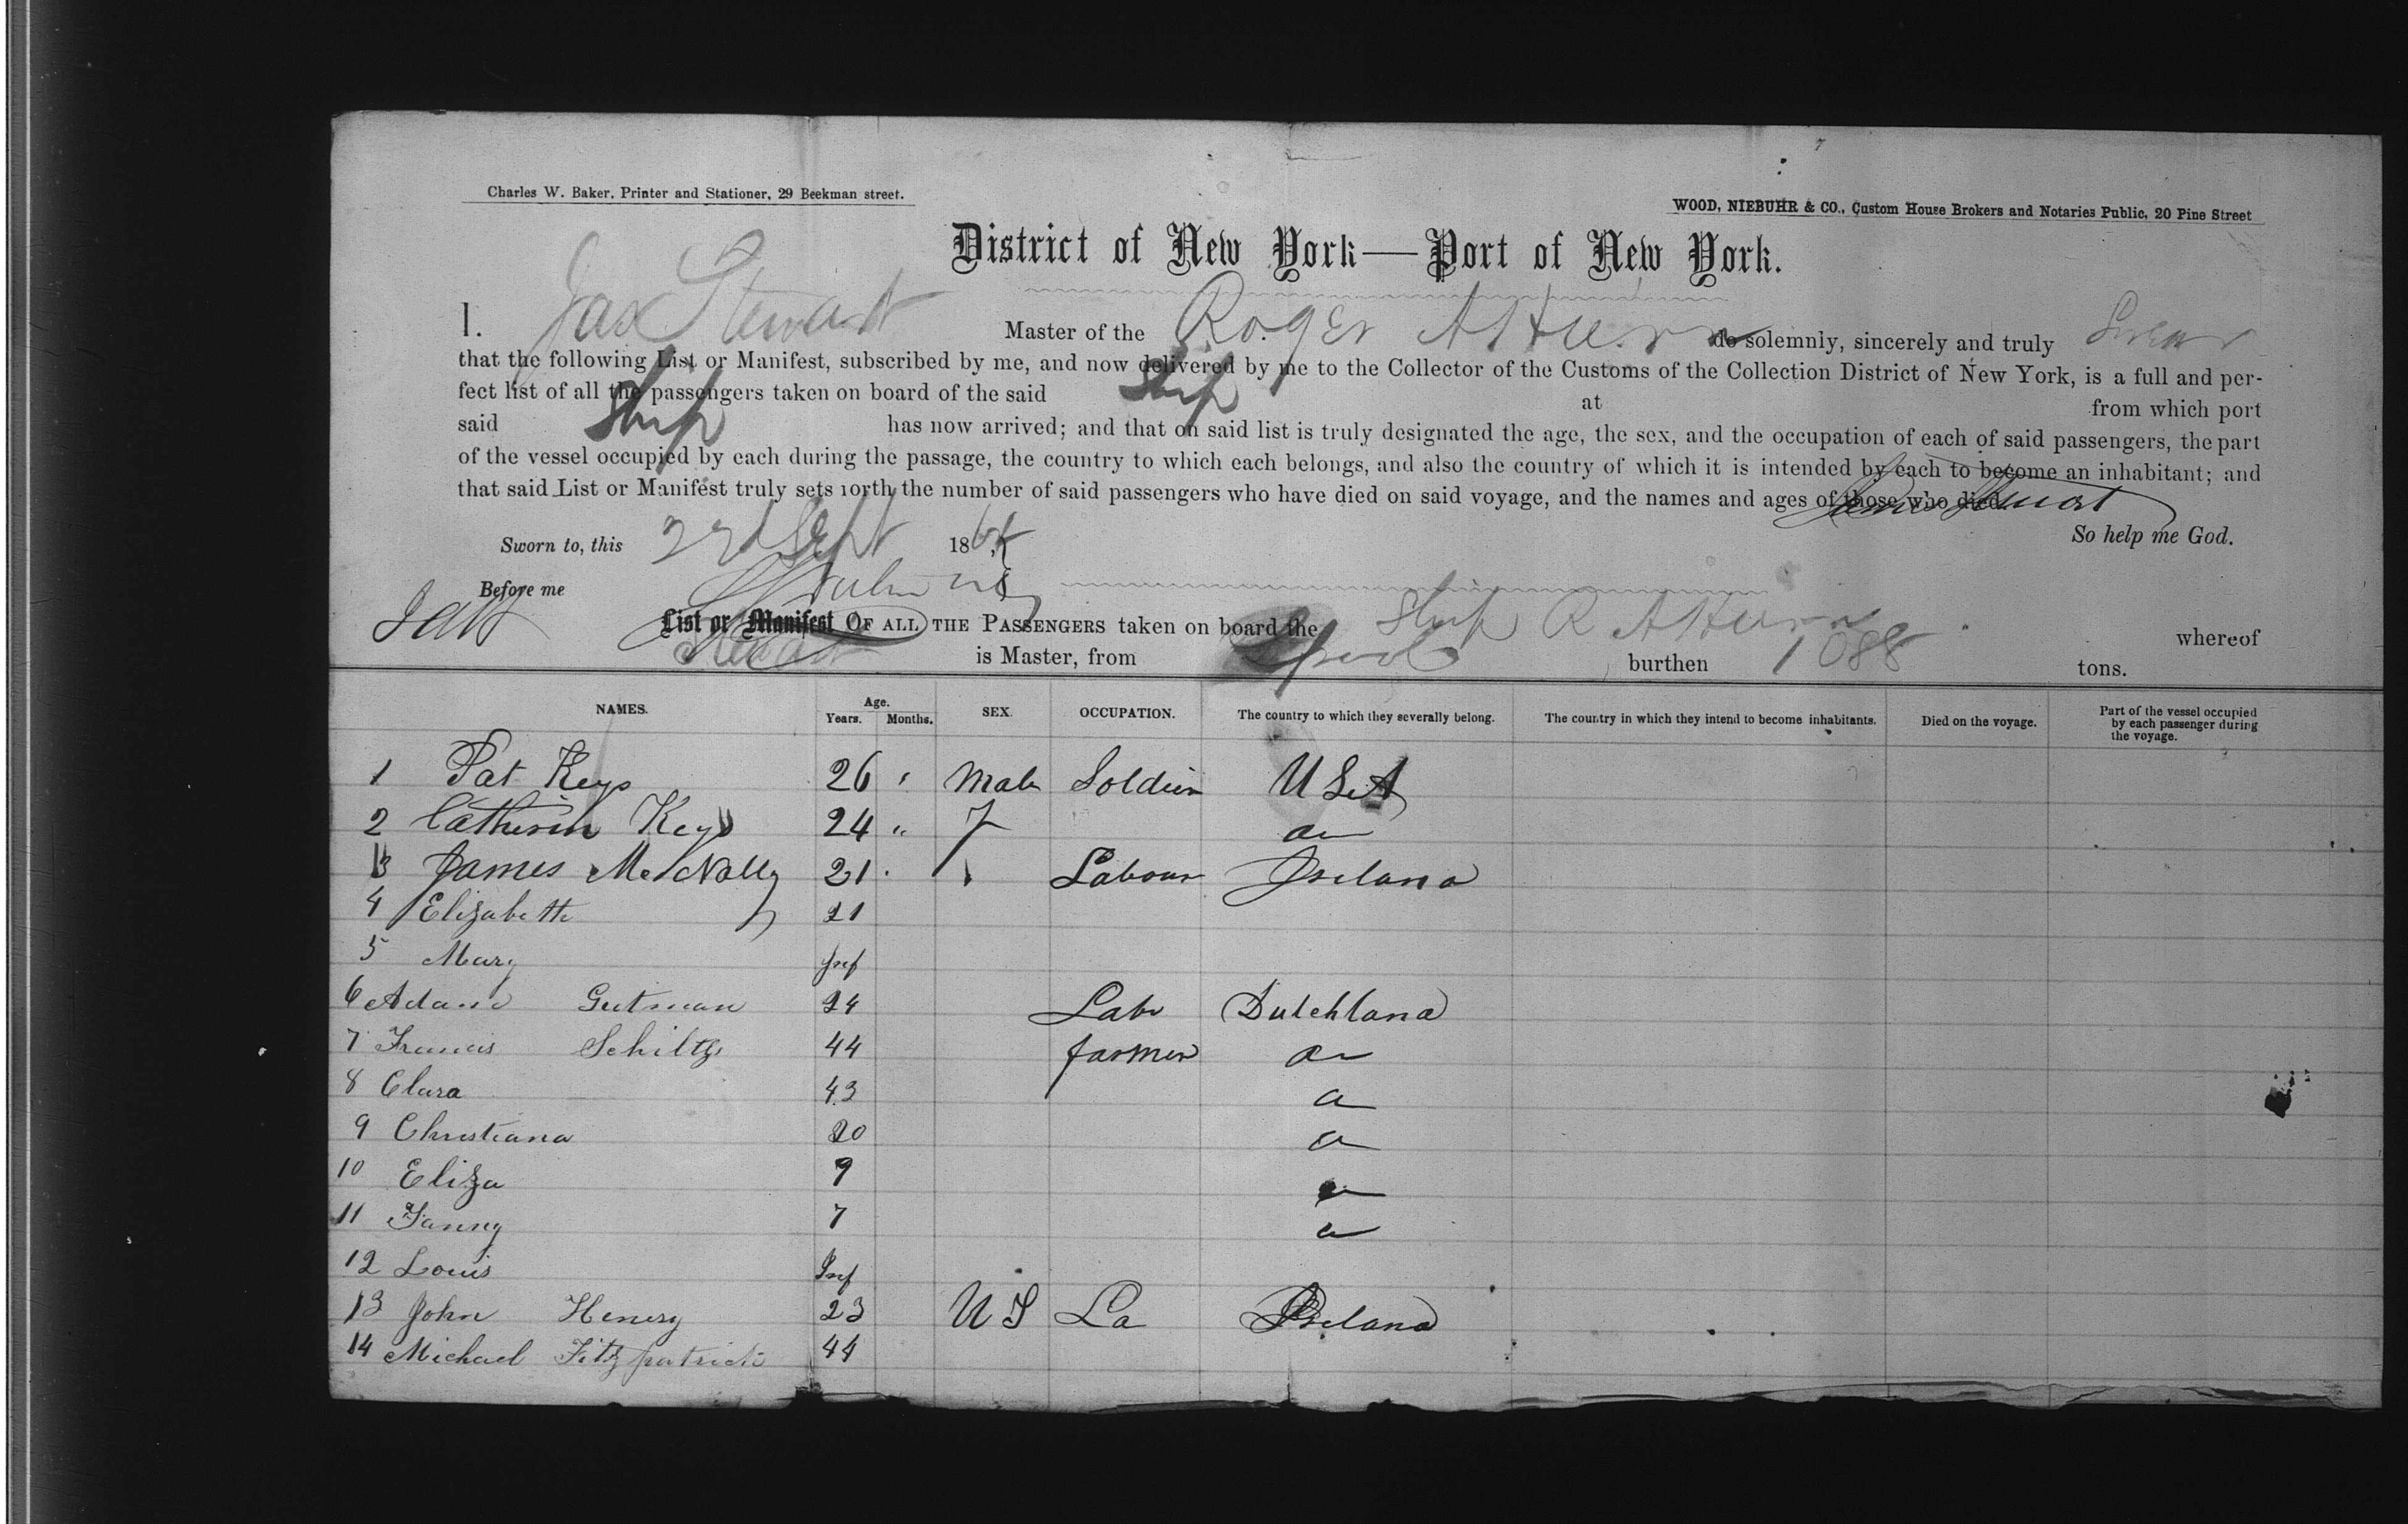 Charles W. Baker, Printer and Stationer, 29 Beekman street.
WOOD, NIEBUHR & CO., Custom House Brokers and Notaries Public, 20 Pine Street
District of New York—Port of New York.
I. Jas Stewart Master of the Roger A Hiern do solemnly, sincerely and truly Swear
that the following List or Manifest, subscribed by me, and now delivered by me to the Collector of the Customs of the Collection District of New York, is a full and per-
fect list of all the passengers taken on board of the said Ship at from which port
said Ship has now arrived; and that on said list is truly designated the age, the sex, and the occupation of each of said passengers, the part
of the vessel occupied by each during the passage, the country to which each belongs, and also the country of which it is intended by each to become an inhabitant; and
that said List or Manifest truly sets forth the number of said passengers who have died on said voyage, and the names and ages of those who died.
James Stewart
Sworn to, this 22d Sept 186 So help me God.
Before me
List or Manifest OF ALL THE PASSENGERS taken on board the Ship R A Hiern whereof
Stewart is Master, from Lpool burthen 1088 tons.
NAMES. Age. Years. Months. SEX. OCCUPATION. The country to which they severally belong. The country in which they intend to become inhabitants. Died on the voyage. Part of the vessel occupied by each passenger during the voyage.
1 Pat Keys 26 " Male Soldier U S A
2 Catherin Keys 24 " F do
3 James McNally 21 Labour Ireland
4 Elizabeth 21
5 Mary Inf
6 Adam Gutman 24 Labr Dutchland
7 Francis Schiltz 44 farmer do
8 Clara 43 do
9 Christiana 20 do
10 Eliza 9 do
11 Fanny 7 do
12 Louis Inf
13 John Henery 23 U S La Ireland
14 Michael Fitzpatrick 44